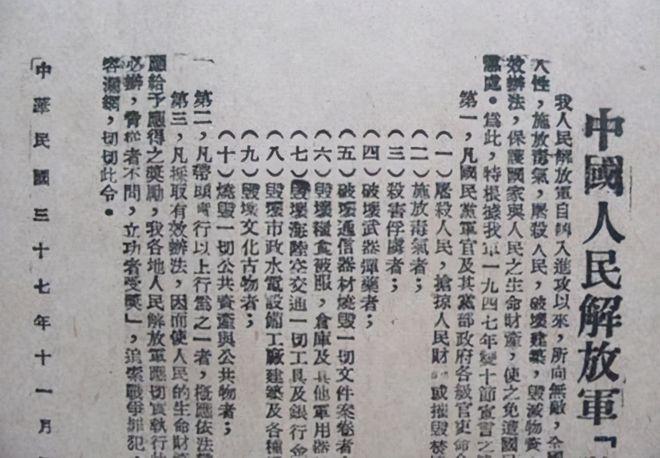 中國人民解放軍「
我人民解放軍自轉入進攻以來，所向無敵，全國
人性，施放毒氣，屠殺人民，破壞建築，毀滅物資，
效辦法，保護國家與人民之生命財產，使之免遭國民
懲處。爲此，特根據我軍一九四七年雙十節宣言之
第一，凡國民黨軍官及其黨部政府各級官吏命令
（一）屠殺人民，搶掠人民財 或摧毀焚
（二）施放毒氣者；
（三）殺害俘虜者；
（四）破壞武器彈藥者；
（五）破壞通信器材燒毀一切文件案卷者
（六）毀壞糧食被服，倉庫及其他軍用器
（七）毀壞海陸空交通一切工具及銀行金
（八）毀壞市政水電設備工廠建築及各種
（九）毀壞文化古物者；
（十）燒毀一切公共資產與公共物者；
第二，凡帶頭實行以上行爲之一者，概應依法
第三，凡採取有效辦法，因而使人民的生命財
應給予應得之獎勵，我各地人民解放軍應切實執行
必辦，脅從者不問，立功者受獎」，追索戰爭罪犯，
容漏網，切切此令。
「中華民國三十七年十一月